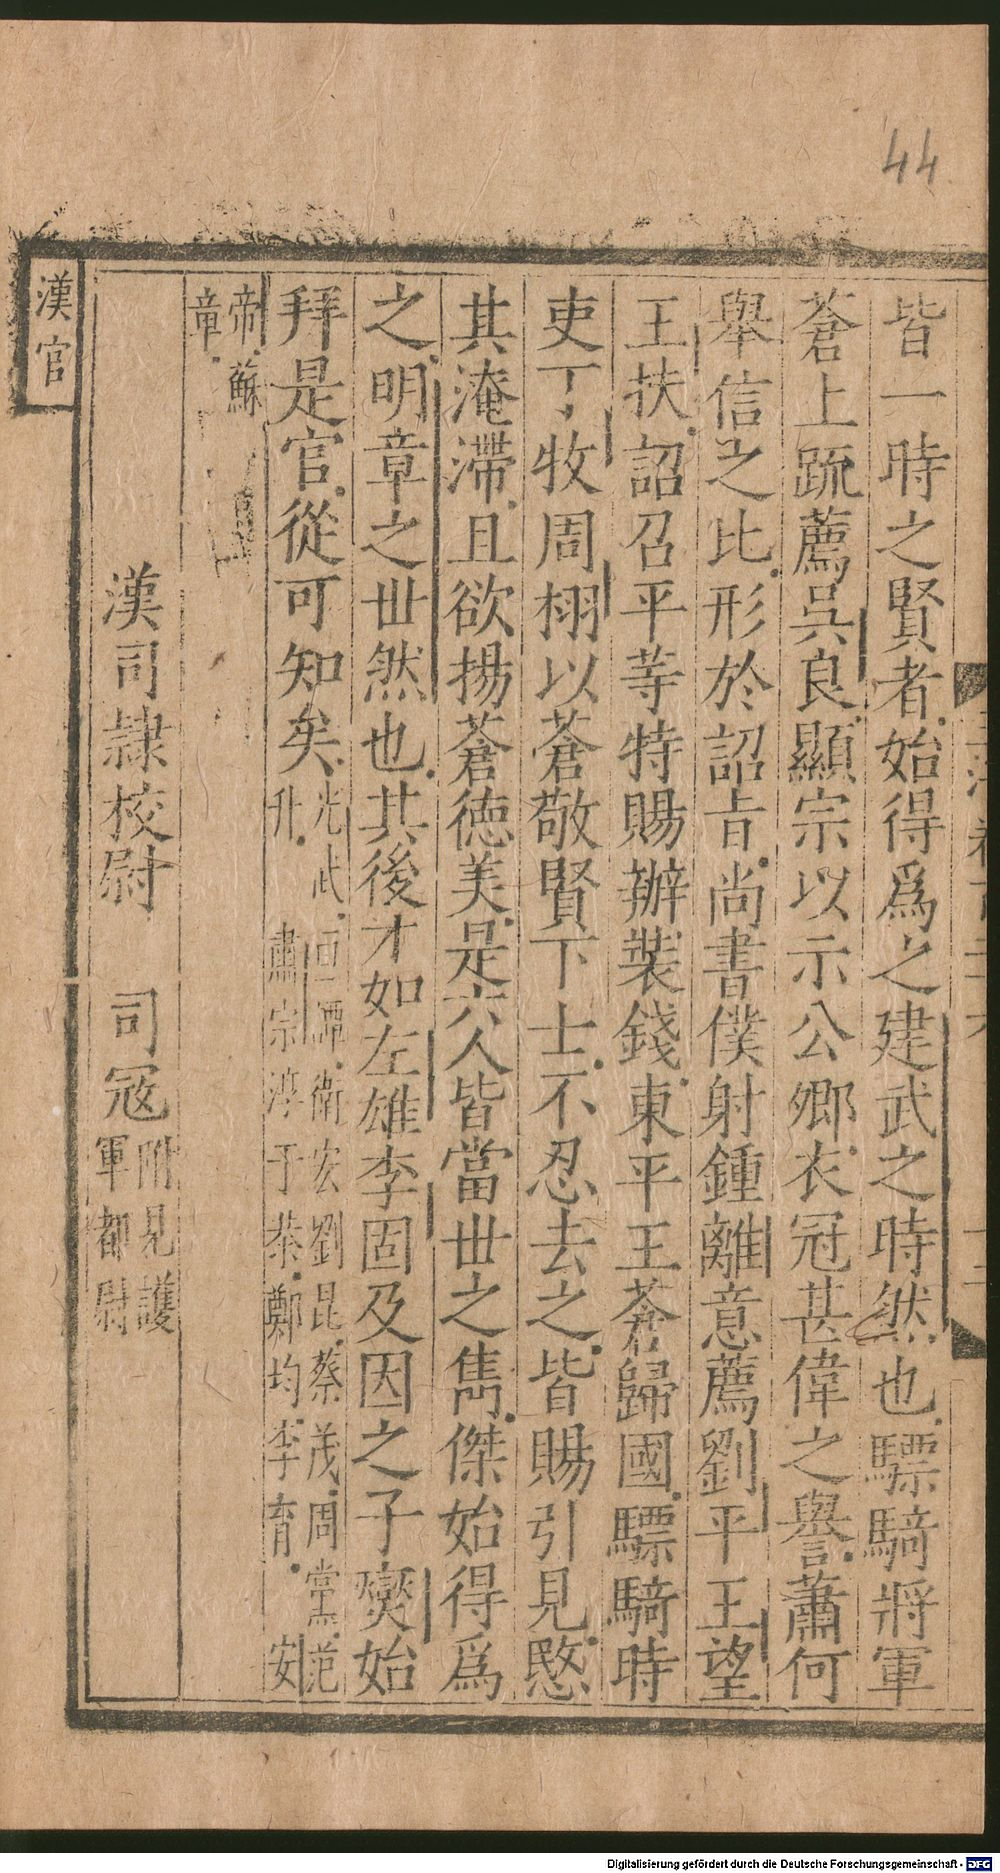 44
皆一時之賢者始得爲之建武之時然也驃騎將軍
蒼上疏薦吳良顯宗以示公卿衣冠甚偉之譽蕭何
舉信之比形於詔旨尚書僕射鍾離意薦劉平王望
王扶詔召平等特賜辦裝錢東平王蒼歸國驃騎時
吏丁牧周栩以蒼敬賢下士不忍去之皆賜引見愍
其淹滯且欲揚蒼德美是六人皆當世之雋傑始得爲
之明章之世然也其後才如左雄李固及因之子爕始
拜是官從可知矣
光武 桓譚衛宏劉昆蔡茂周黨范
升 肅宗淳于恭鄭均李育 安
帝 蘇
章
漢司隷校尉 司寇
附見護
軍都尉
漢官
Digitalisierung gefördert durch die Deutsche Forschungsgemeinschaft - DFG